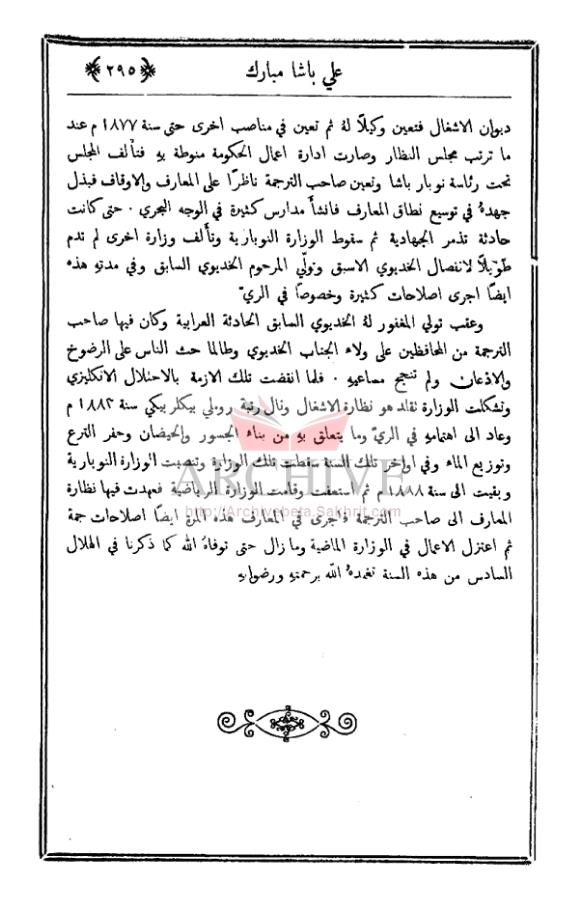 علي باشا مبارك ﴿٢٩٥﴾
ديوان الاشغال فتعين وكيلًا لهُ ثم تعين في مناصب اخرى حتى سنة ١٨٧٧ م عند
ما ترتب مجلس النظار وصارت ادارة اعمال الحكومة منوطة بهِ فتألف المجلس
تحت رئاسة نوبار باشا وتعين صاحب الترجمة ناظرًا على المعارف والاوقاف فبذل
جهدهُ في توسيع نطاق المعارف فانشأ مدارس كثيرة في الوجه البحري . حتى كانت
حادثة تذمر الجهادية ثم سقوط الوزارة النوبارية وتألف وزارة اخرى لم تدم
طويلًا لانفصال الخديوي الاسبق وتولّي المرحوم الخديوي السابق وفي مدتهِ هذه
ايضًا اجرى اصلاحات كثيرة وخصوصًا في الريّ
وعقب تولي المغفور لهُ الخديوي السابق الحادثة العرابية وكان فيها صاحب
الترجمة من المحافظين على ولاء الجناب الخديوي وطالما حث الناس على الرضوخ
والاذعان ولم تنجح مساعيهِ . فلما انقضت تلك الازمة بالاحتلال الانكليزي
وتشكلت الوزارة تقلد هو نظارة الاشغال ونال رتبة رولي بيكلر بيكي سنة ١٨٨٢ م
وعاد الى اهتمامهِ في الريّ وما يتعلق بهِ من بناء الجسور والحيضان وحفر الترع
وتوزيع الماء وفي اواخر تلك السنة سقطت تلك الوزارة وتنصبت الوزارة النوبارية
وبقيت الى سنة ١٨٨٨ م ثم استعفت وقامت الوزارة الرياضية فعهدت فيها نظارة
المعارف الى صاحب الترجمة فاجرى في المعارف هذه المرة ايضًا اصلاحات جمة
ثم اعتزل الاعمال في الوزارة الماضية وما زال حتى توفاهُ الله كما ذكرنا في الهلال
السادس من هذه السنة تغمدهُ الله برحمتهِ ورضوانهِ
ARCHIVE
http://Archivebeta.Sakhrit.com